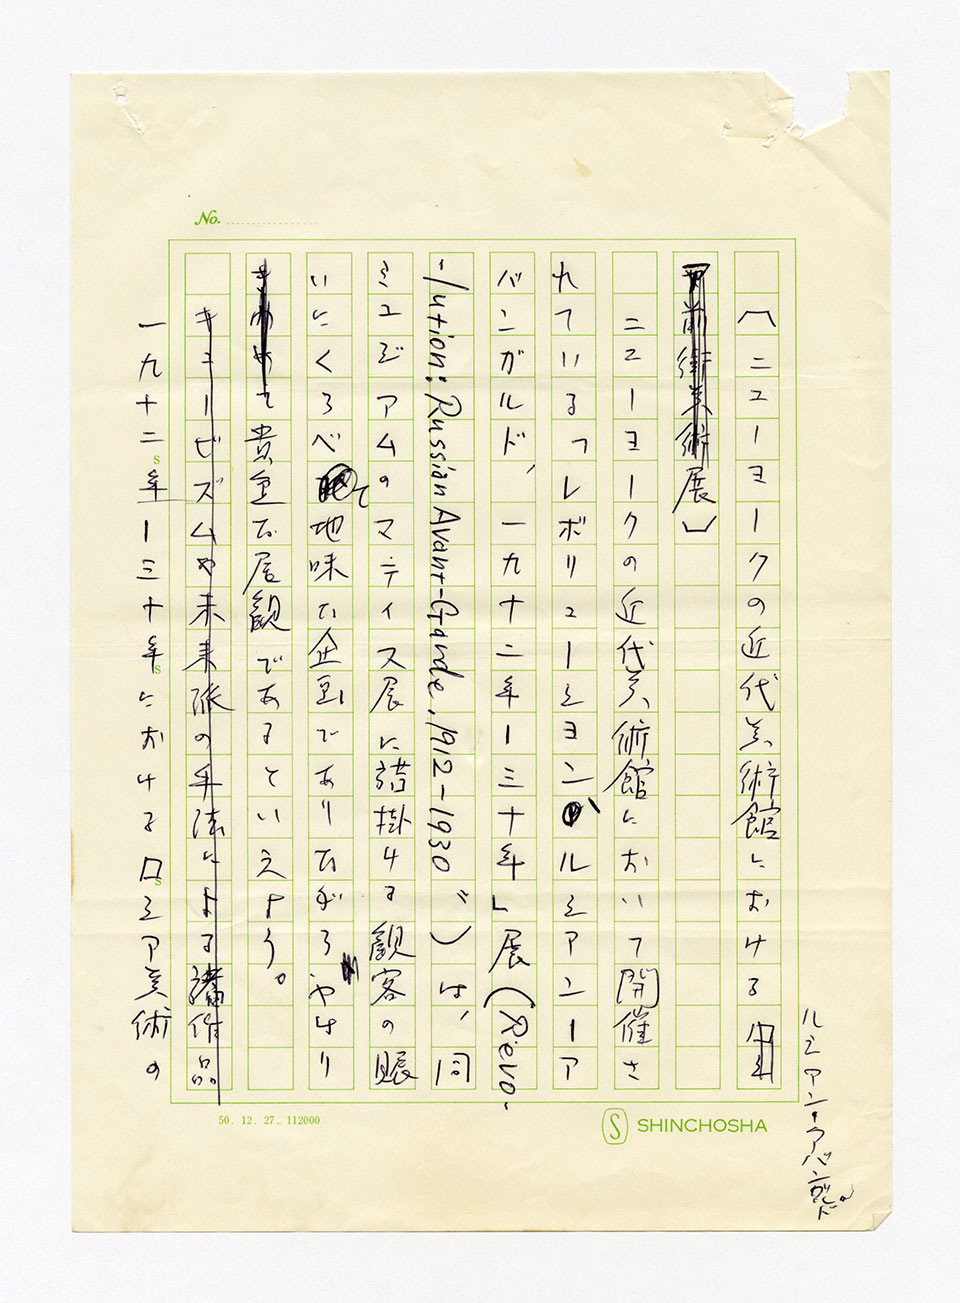 No.
〔ニューヨークの近代美術館における
ルシアン・アバンガルドの
前衛美術展〕
ニューヨークの近代美術館において開催さ
れている「レボリューション、ルシアン―ア
バンガルド、一九十二年―三十年」展（Revo-
-lution: Russian Avant-Garde, 1912-1930"）は、同
ミュジアムのマティス展に詰掛ける観客の賑
いにくらべて地味な企画でありながらやはり
きわめて貴重な展観であるといえよう。
キュービズムや未来派の手法による諸作品
一九十二年―三十年におけるロシア美術の
50. 12. 27. 112000
S SHINCHOSHA